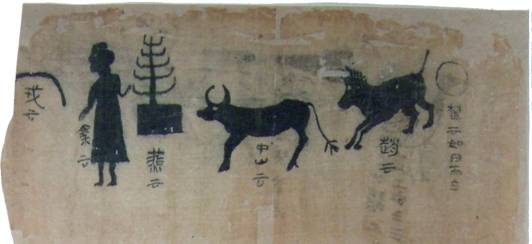 楚云如日而白
趙云
中山云
燕云
秦云
戎云